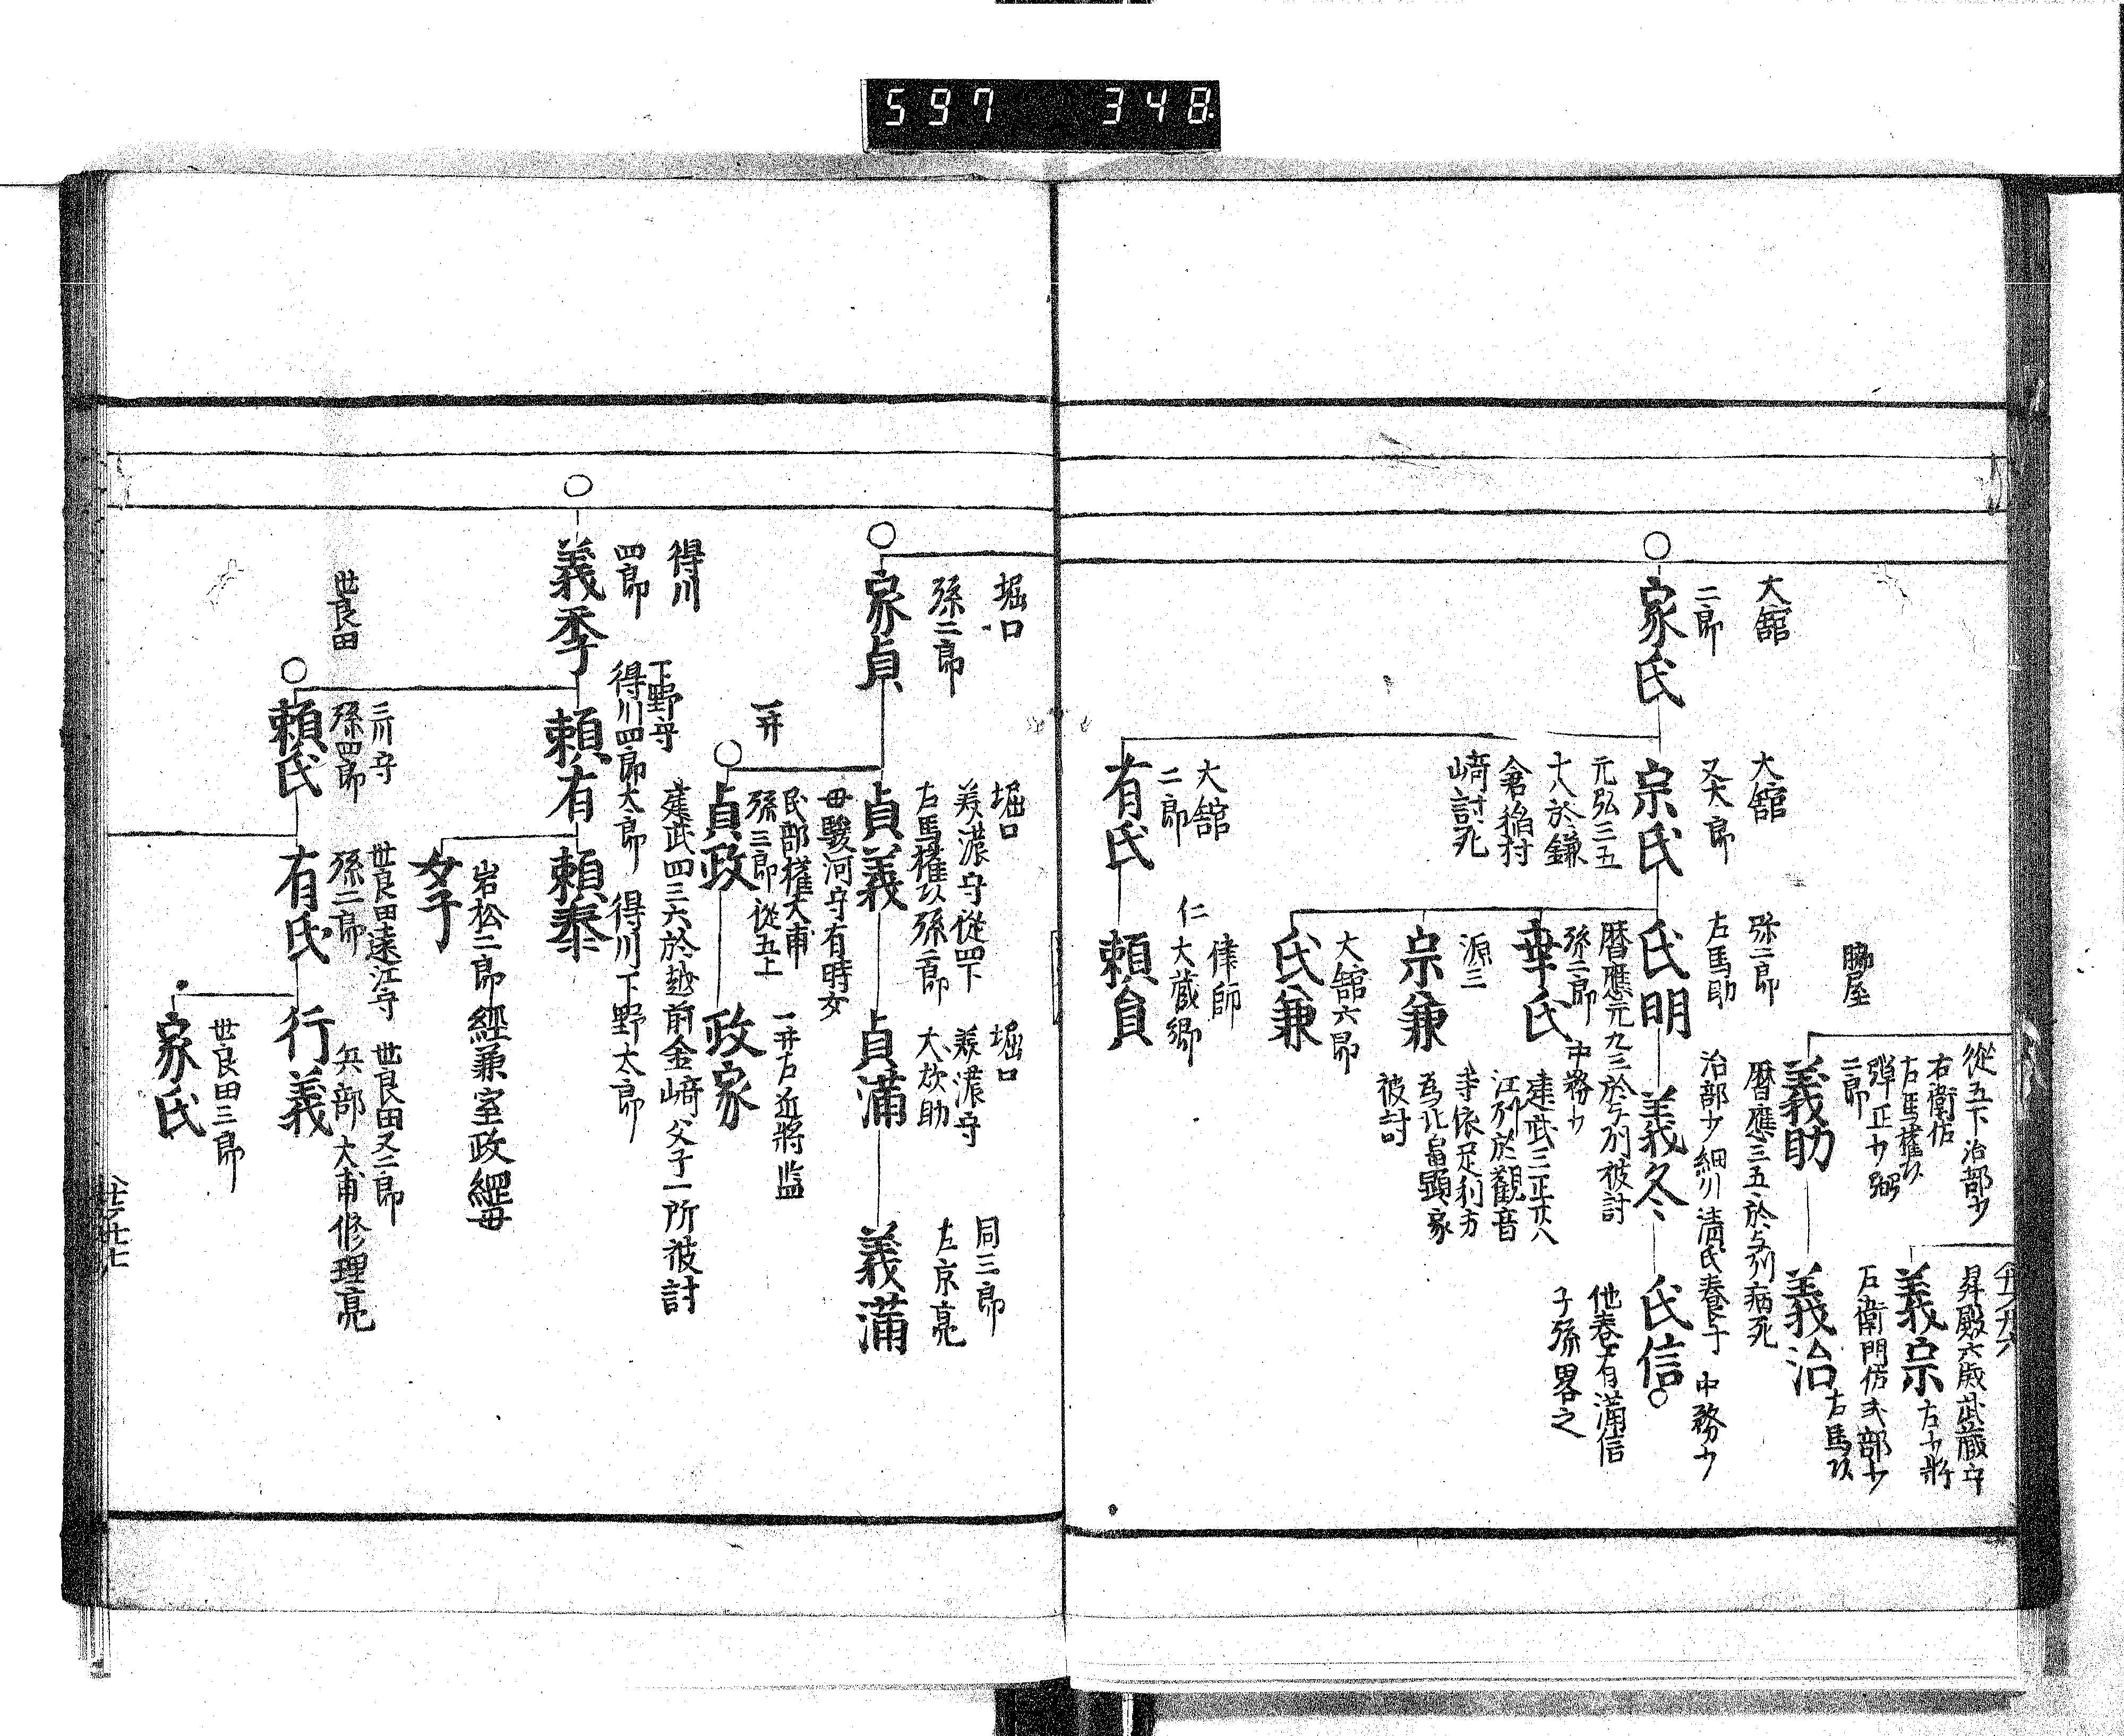 597 348
昇殿六歳武蔵守
義宗
右少将
從五下治部少
右衛佐
左馬權頭
弾正少弼
二郎
脇屋
義助
暦應三五於与列病死
右衛門佐式部少
義治
左馬頭
大舘
二郎
家氏
大舘
又太郎
宗氏
元弘三五
十八於鎌
倉稲村
﨑討死
弥二郎
左馬助
氏明
暦應元九三於与列被討
治部少細川清氏養子
義冬
中務少
氏信
他春有満信
子孫畧之
孫二郎 中務少
幸氏
建武三正十八
江列於觀音
寺依足利方
為北畠顕家
被討
源三
宗兼
大舘六郎
氏兼
大舘
二郎
有氏
律師
仁大蔵卿
頼員
堀口
孫二郎
家貞
堀口
美濃守從四下
右馬權頭孫二郎
貞義
母駿河守有時女
堀口
美濃守
大炊助
貞満
同三郎
左京亮
義満
一井
民部權大甫
孫三郎 從五上
貞政
一井右近將监
政家
建武四三六於越前金﨑父子一所被討
得川
四郎
義季
下野守
得川四郎太郎
頼有
得川下野太郎
頼泰
岩松二郎經兼室政經母
女子
世良田
三川守
孫四郎
頼氏
世良田遠江守
孫二郎
有氏
世良田又二郎
兵部大甫修理亮
行義
世良田三郎
家氏